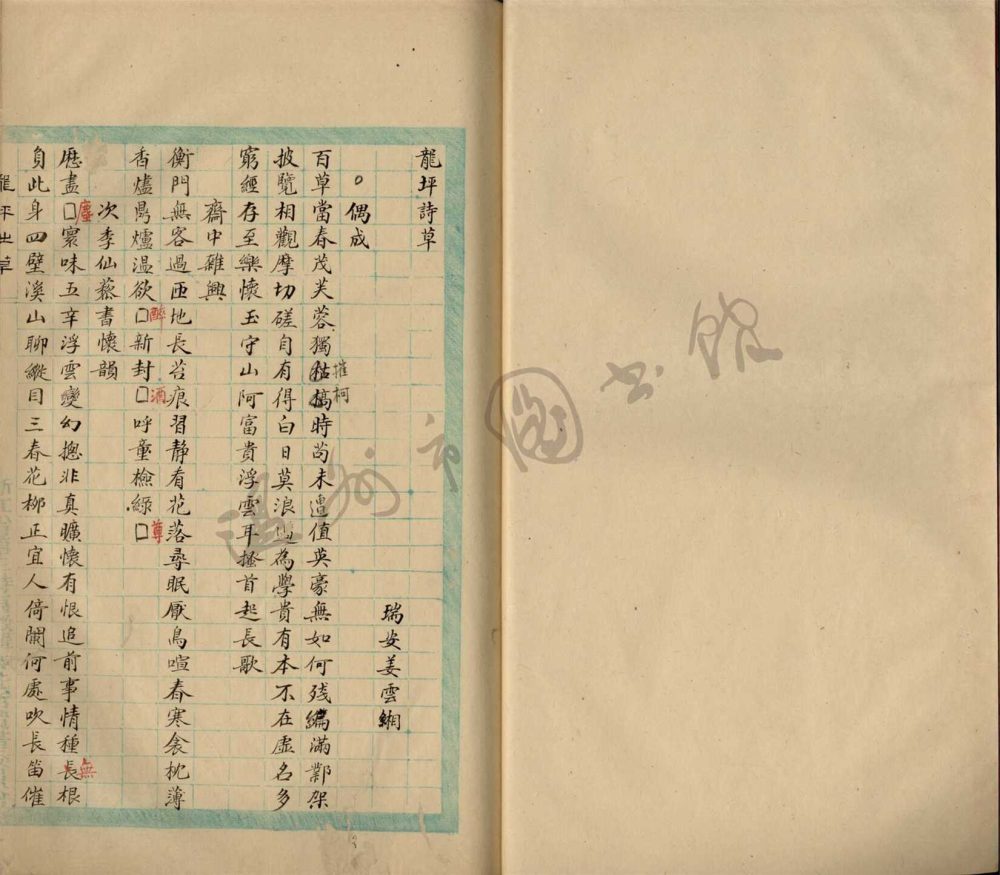 龍坪詩草
瑞安姜雲緗
○偶成
百草當春茂芙蓉獨枯槁時尚未遭值英豪無如何殘編滿鄴架
摧柯
披覽相觀摩切磋自有得白日莫浪過為學貴有本不在虛名多
窮經存至樂懷玉守山阿富貴浮雲耳搔首起長歌
齋中雜興
衡門無客過匝地長苔痕習静看花落尋眠厭鳥喧春寒衾枕薄
香燼鳧爐温欲□新封□呼童檢綠□
醉
酒
尊
次季仙蓺書懷韻
歷盡□寰味五辛浮雲變幻摠非真曠懷有恨追前事情種長根
塵
無
負此身四壁溪山聊縱目三春花柳正宜人倚闌何處吹長笛催
龍坪出草
溫州市圖书館